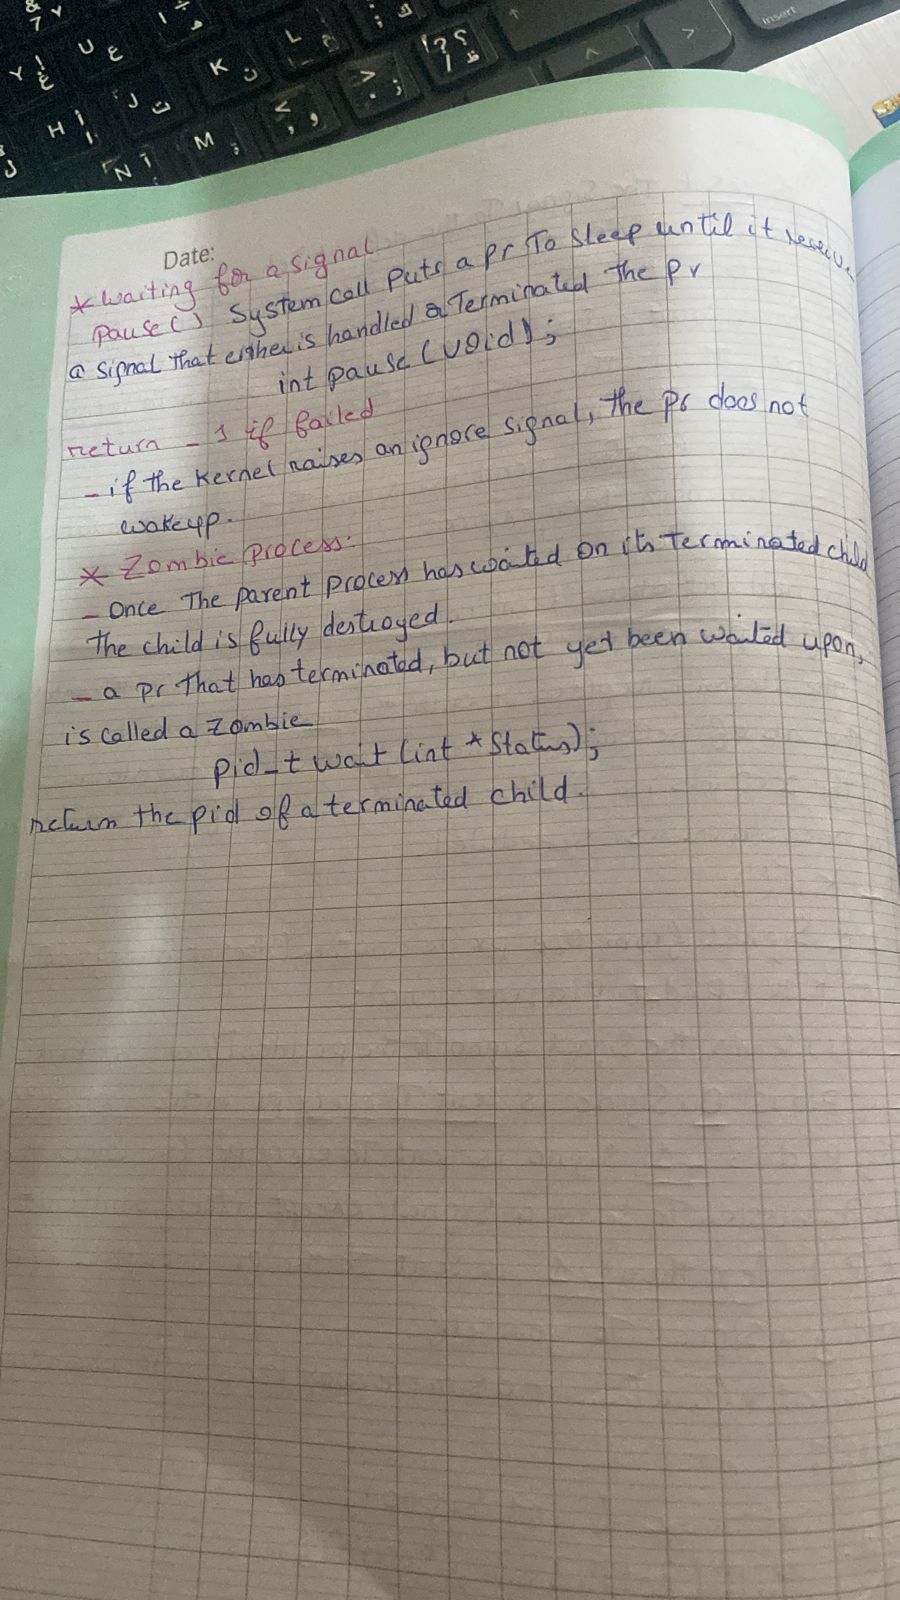 & 7 ٧
Y غ إ
U ع
١
L
K ن
J ت
؟ ? / ظ
> .
< , و
H أ ا
M
N
insert
Date:
* Waiting for a signal
Pause() System call Puts a pr To Sleep until it
a signal that either is handled a Terminated the pr
int pause (void);
return -1 if failed
- if the kernel raises an ignore signal, the pr does not
wakeup.
* Zombie Process:
- Once The parent Process has waited on its terminated child
The child is fully destroyed.
- a pr That has terminated, but not yet been waited upon,
is called a Zombie
pid_t wait (int *Status);
return the pid of a terminated child.